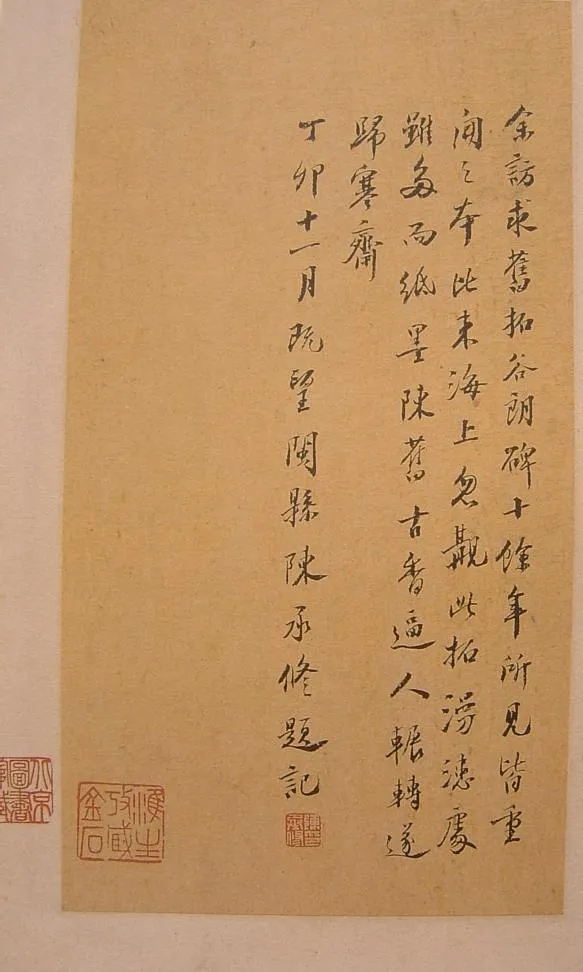 余訪求舊拓谷朗碑十餘年所見皆重
開之本比來海上忽覯此拓漫漶處
雖多而紙墨陳舊古香逼人輾轉遂
歸寒齋
丁卯十一月既望閩縣陳承修題記
淮生
攷藏
金石
北京
圖書